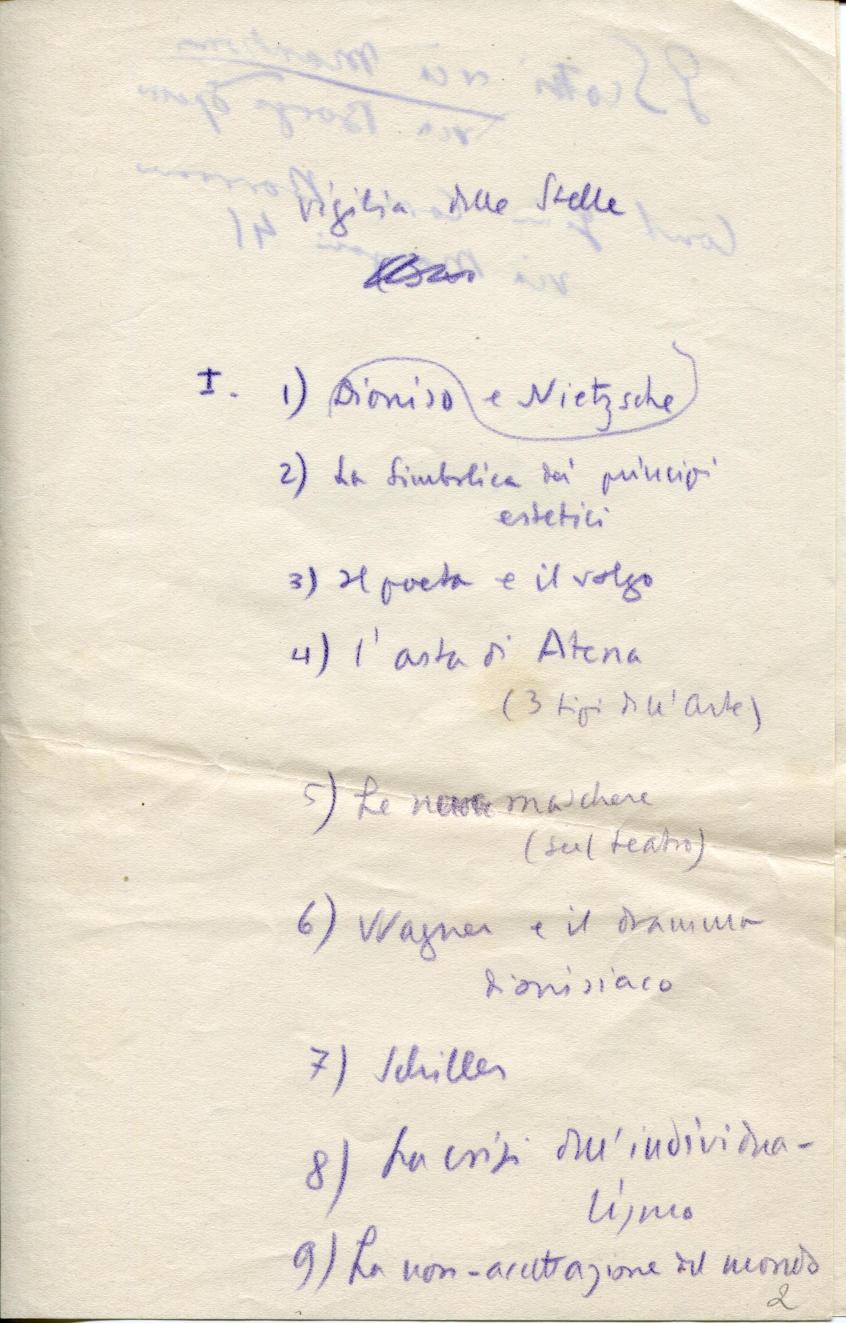 Vigilia delle Stelle
I. 1) Dioniso e Nietzsche
2) La Simbolica dei principi
estetici
3) Il poeta e il volgo
4) l'asta di Atena
(3 tipi dell'Arte)
5) Le maschere
(sul teatro)
6) Wagner e il dramma
dionisiaco
7) Schiller
8) La crisi dell'individua-
lismo
9) La non-accettazione del mondo
2